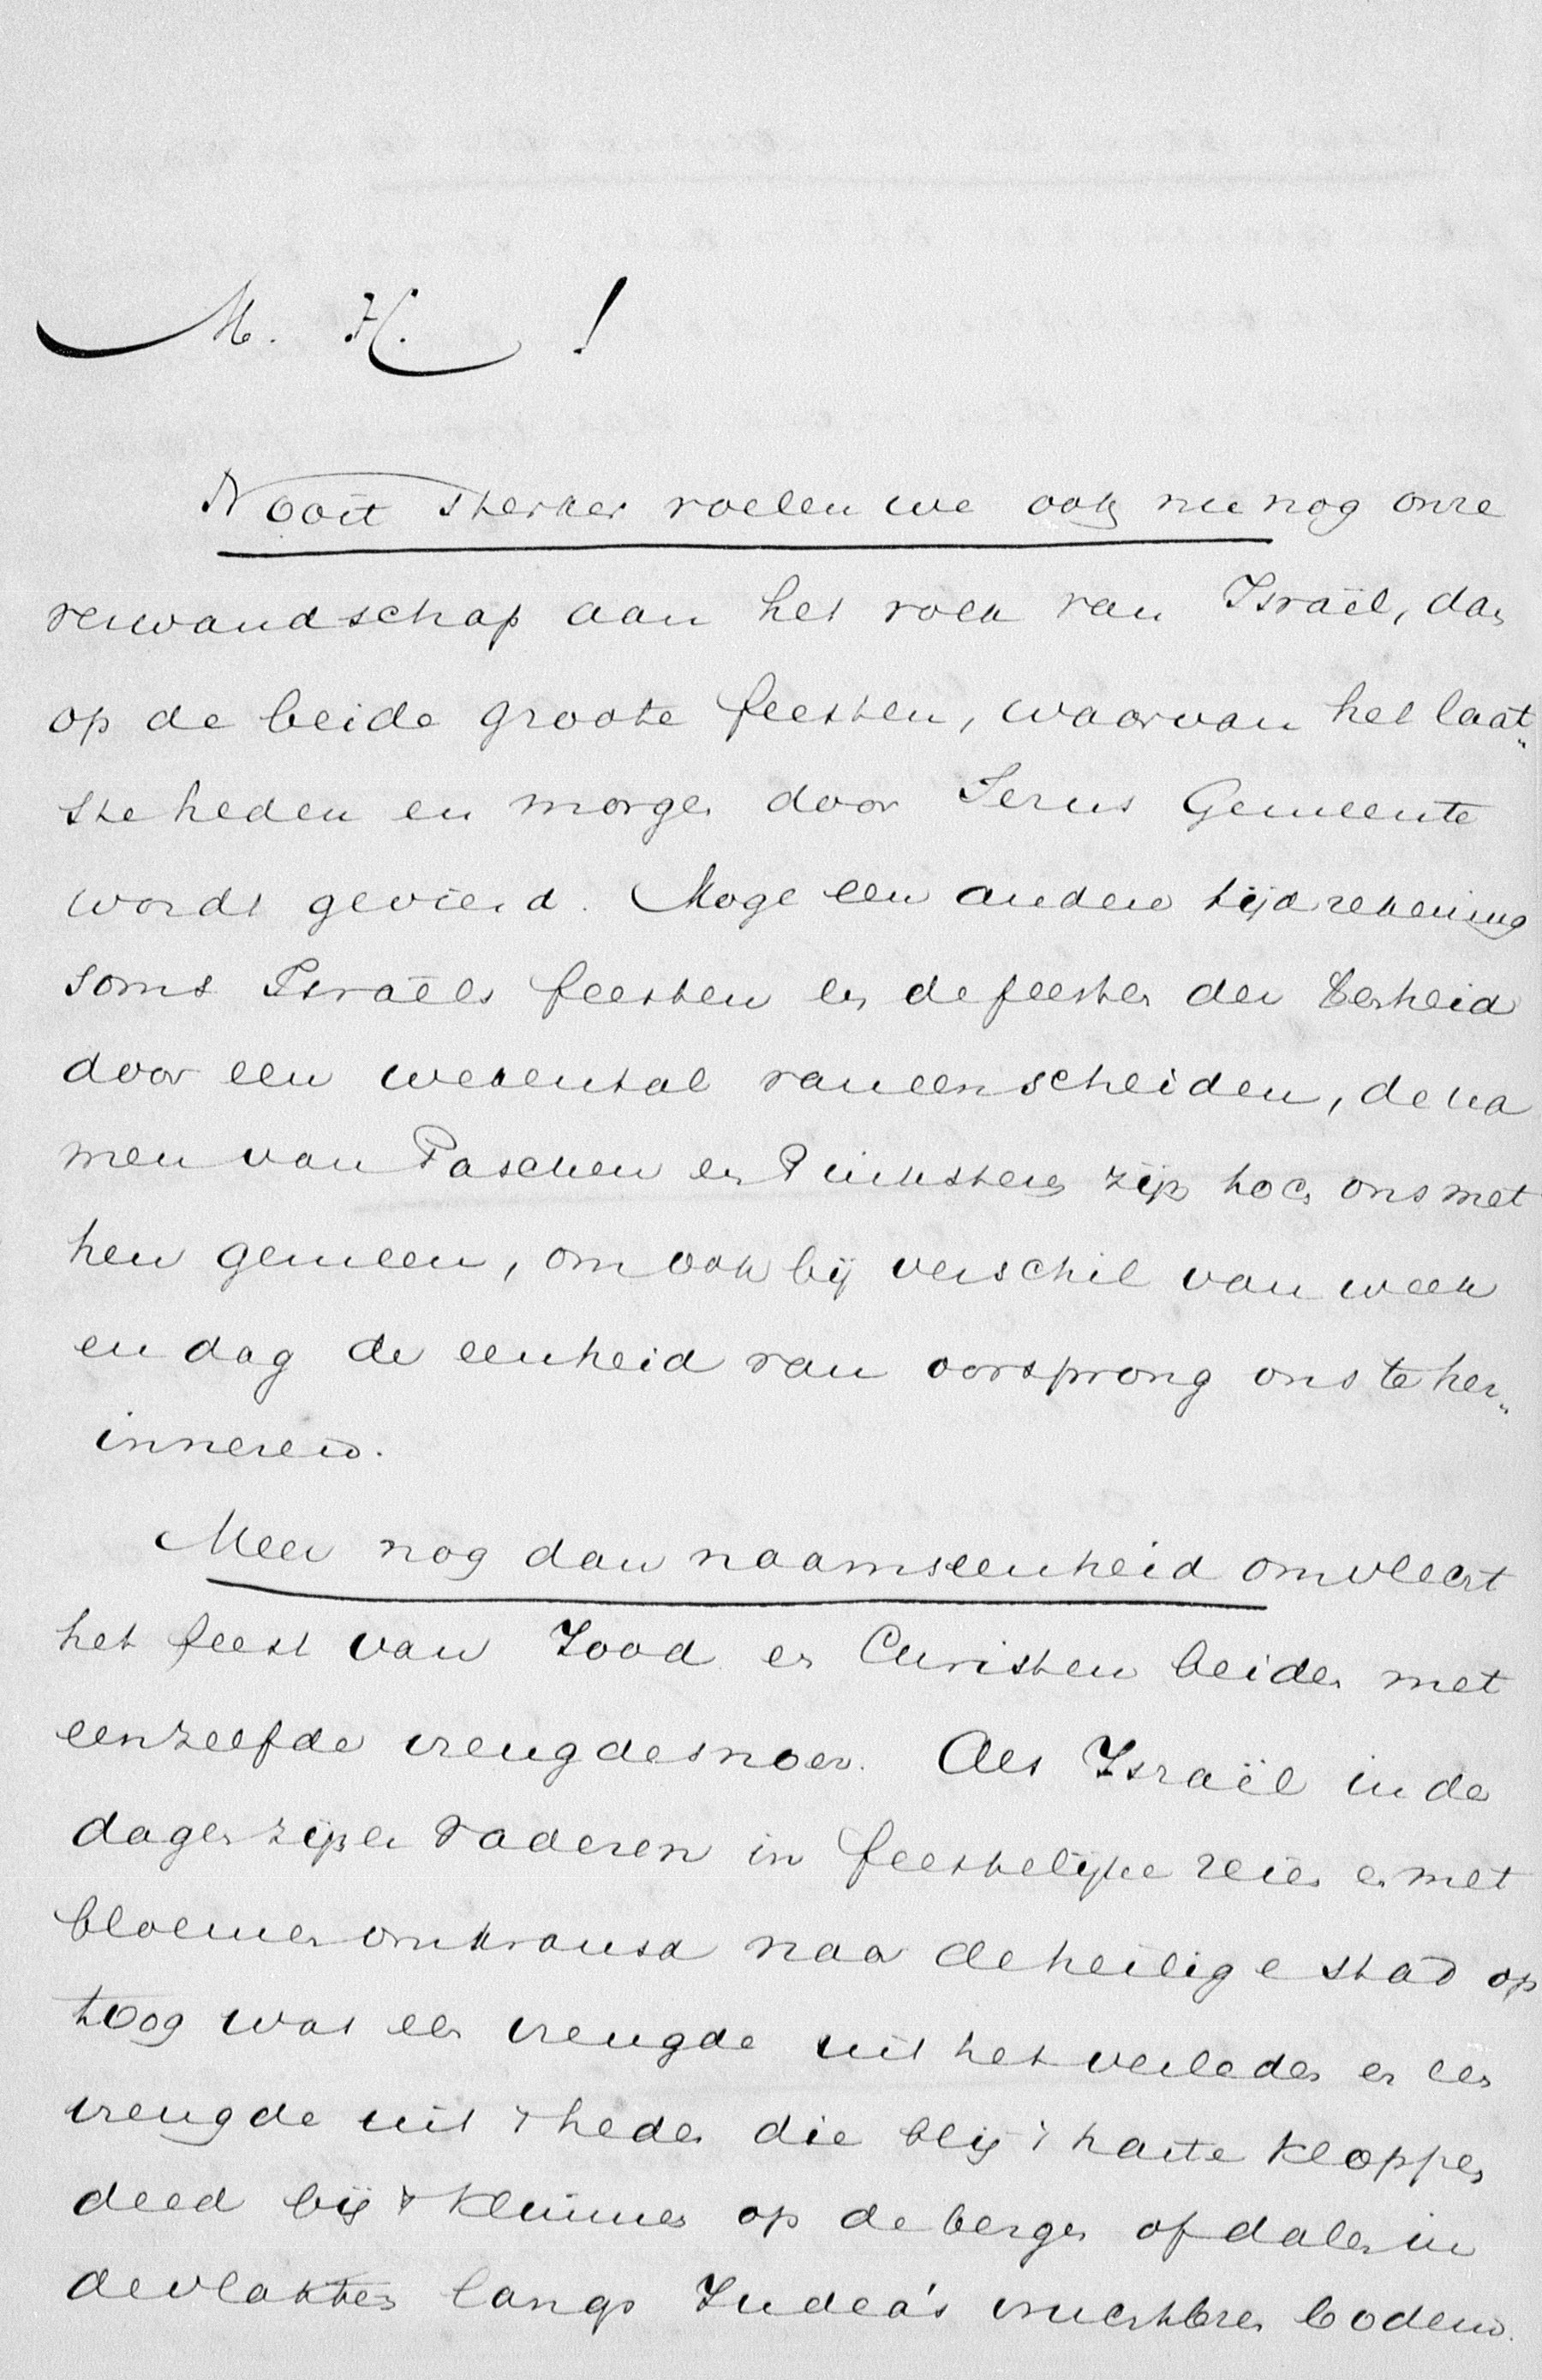 M. H. !
Nooit sterker voelen we ook nu nog onze
verwandschap aan het volk van Israël, dan
op de beide groote feesten, waarvan het laat„
ste heden en morgen door Jezus Gemeente
wordt gevierd. Moge een andere tijdrekening
soms Israëls feesten en de feesten der
door een wekental vaneen scheiden, de na
men van Paschen en Pinksteren zijn toch ons met
hen gemeen, om ook bij verschil van week
en dag de eenheid van oorsprong ons te her„
inneren.
Meer nog dan naamseenheid omvlecht
het feest van Jood en Christen beiden met
eenzelfde vreugdesnoer. Als Israël in de
dagen zijner vaderen in feestelijke reien en met
bloemen omkransd naar de heilige stad op
toog was een vreugde uit het verleden en een
vreugde uit 't heden die blij 't harte kloppen
deed bij 't klimmen op de bergen of dalen in
de vlakten langs Judea's vruchtbren bodem.